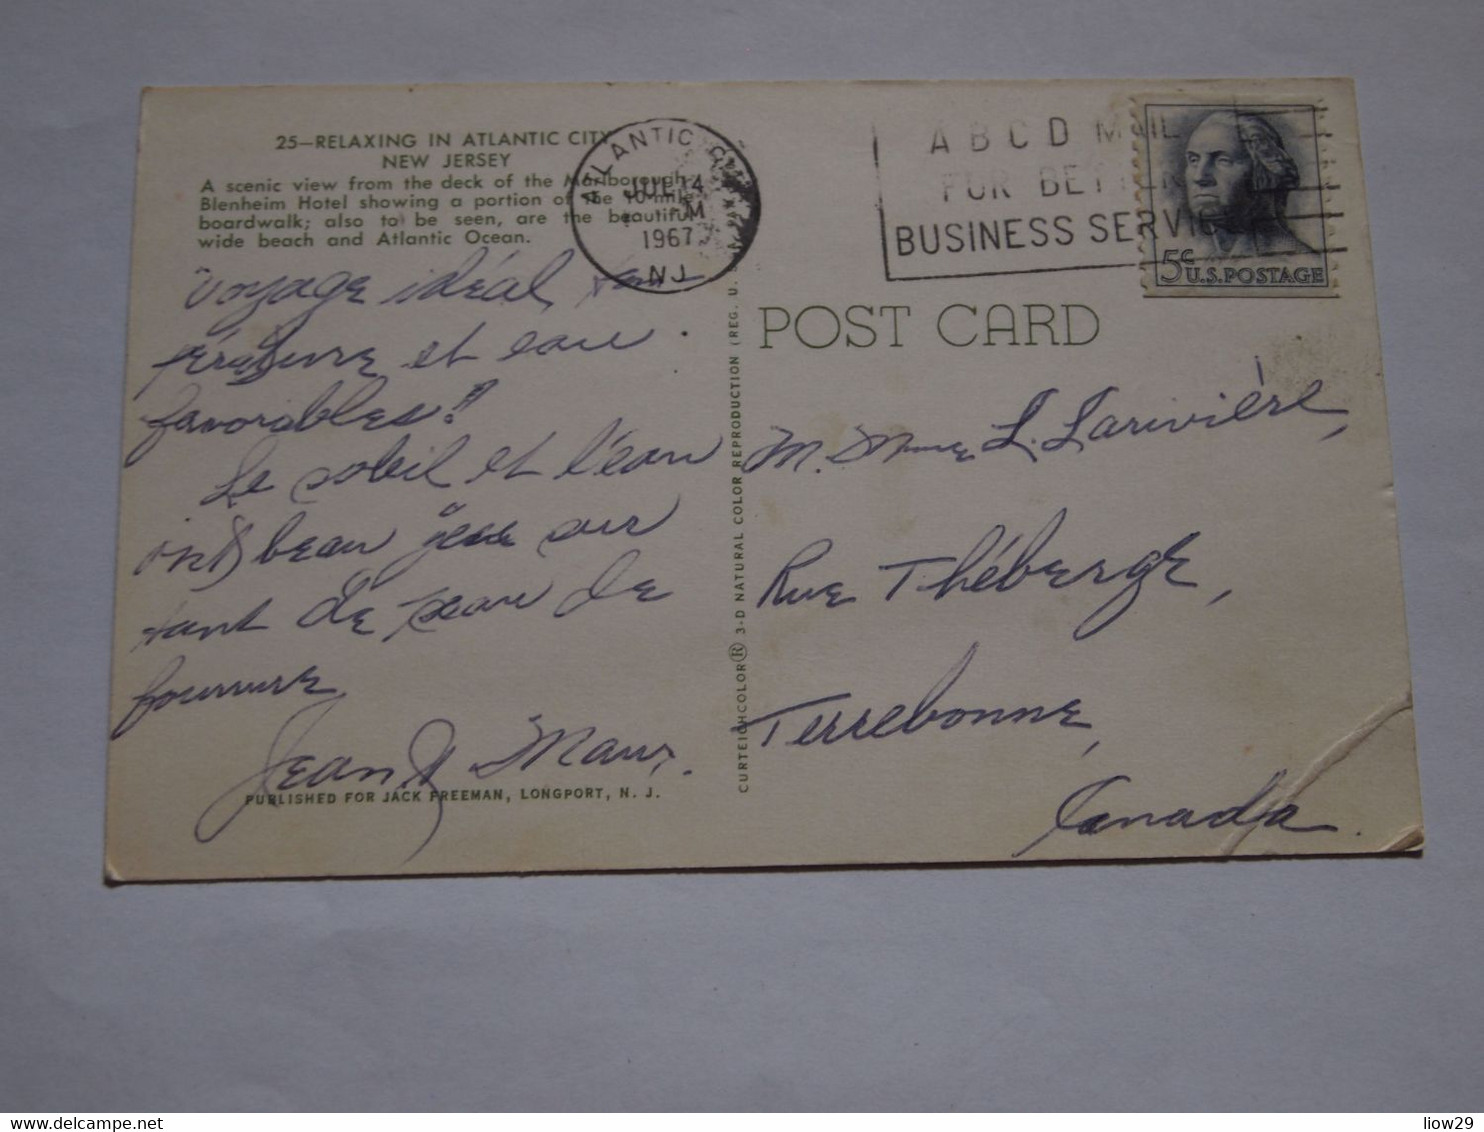 25—RELAXING IN ATLANTIC CITY
NEW JERSEY
A scenic view from the deck of the Marlborough-
Blenheim Hotel showing a portion of the 10 mile
boardwalk; also to be seen, are the beautiful
wide beach and Atlantic Ocean.
ATLANTIC CITY
JUL 14
M
1967
N J
A B C D MAIL
FOR BETTER
BUSINESS SERVICE
5¢ U.S. POSTAGE
POST CARD
Voyage idéal, tem
pérature et eau
favorables!
Le soleil et l'eau
ont beau jeu sur
tant de peau de
fourrure
Jean
PUBLISHED FOR JACK FREEMAN, LONGPORT, N. J.
CURTEICHCOLOR® 3-D NATURAL COLOR REPRODUCTION (REG. U. S.
M. Mme L. Larivière,
Rue Théberge,
Terrebonne,
Canada.
liow29